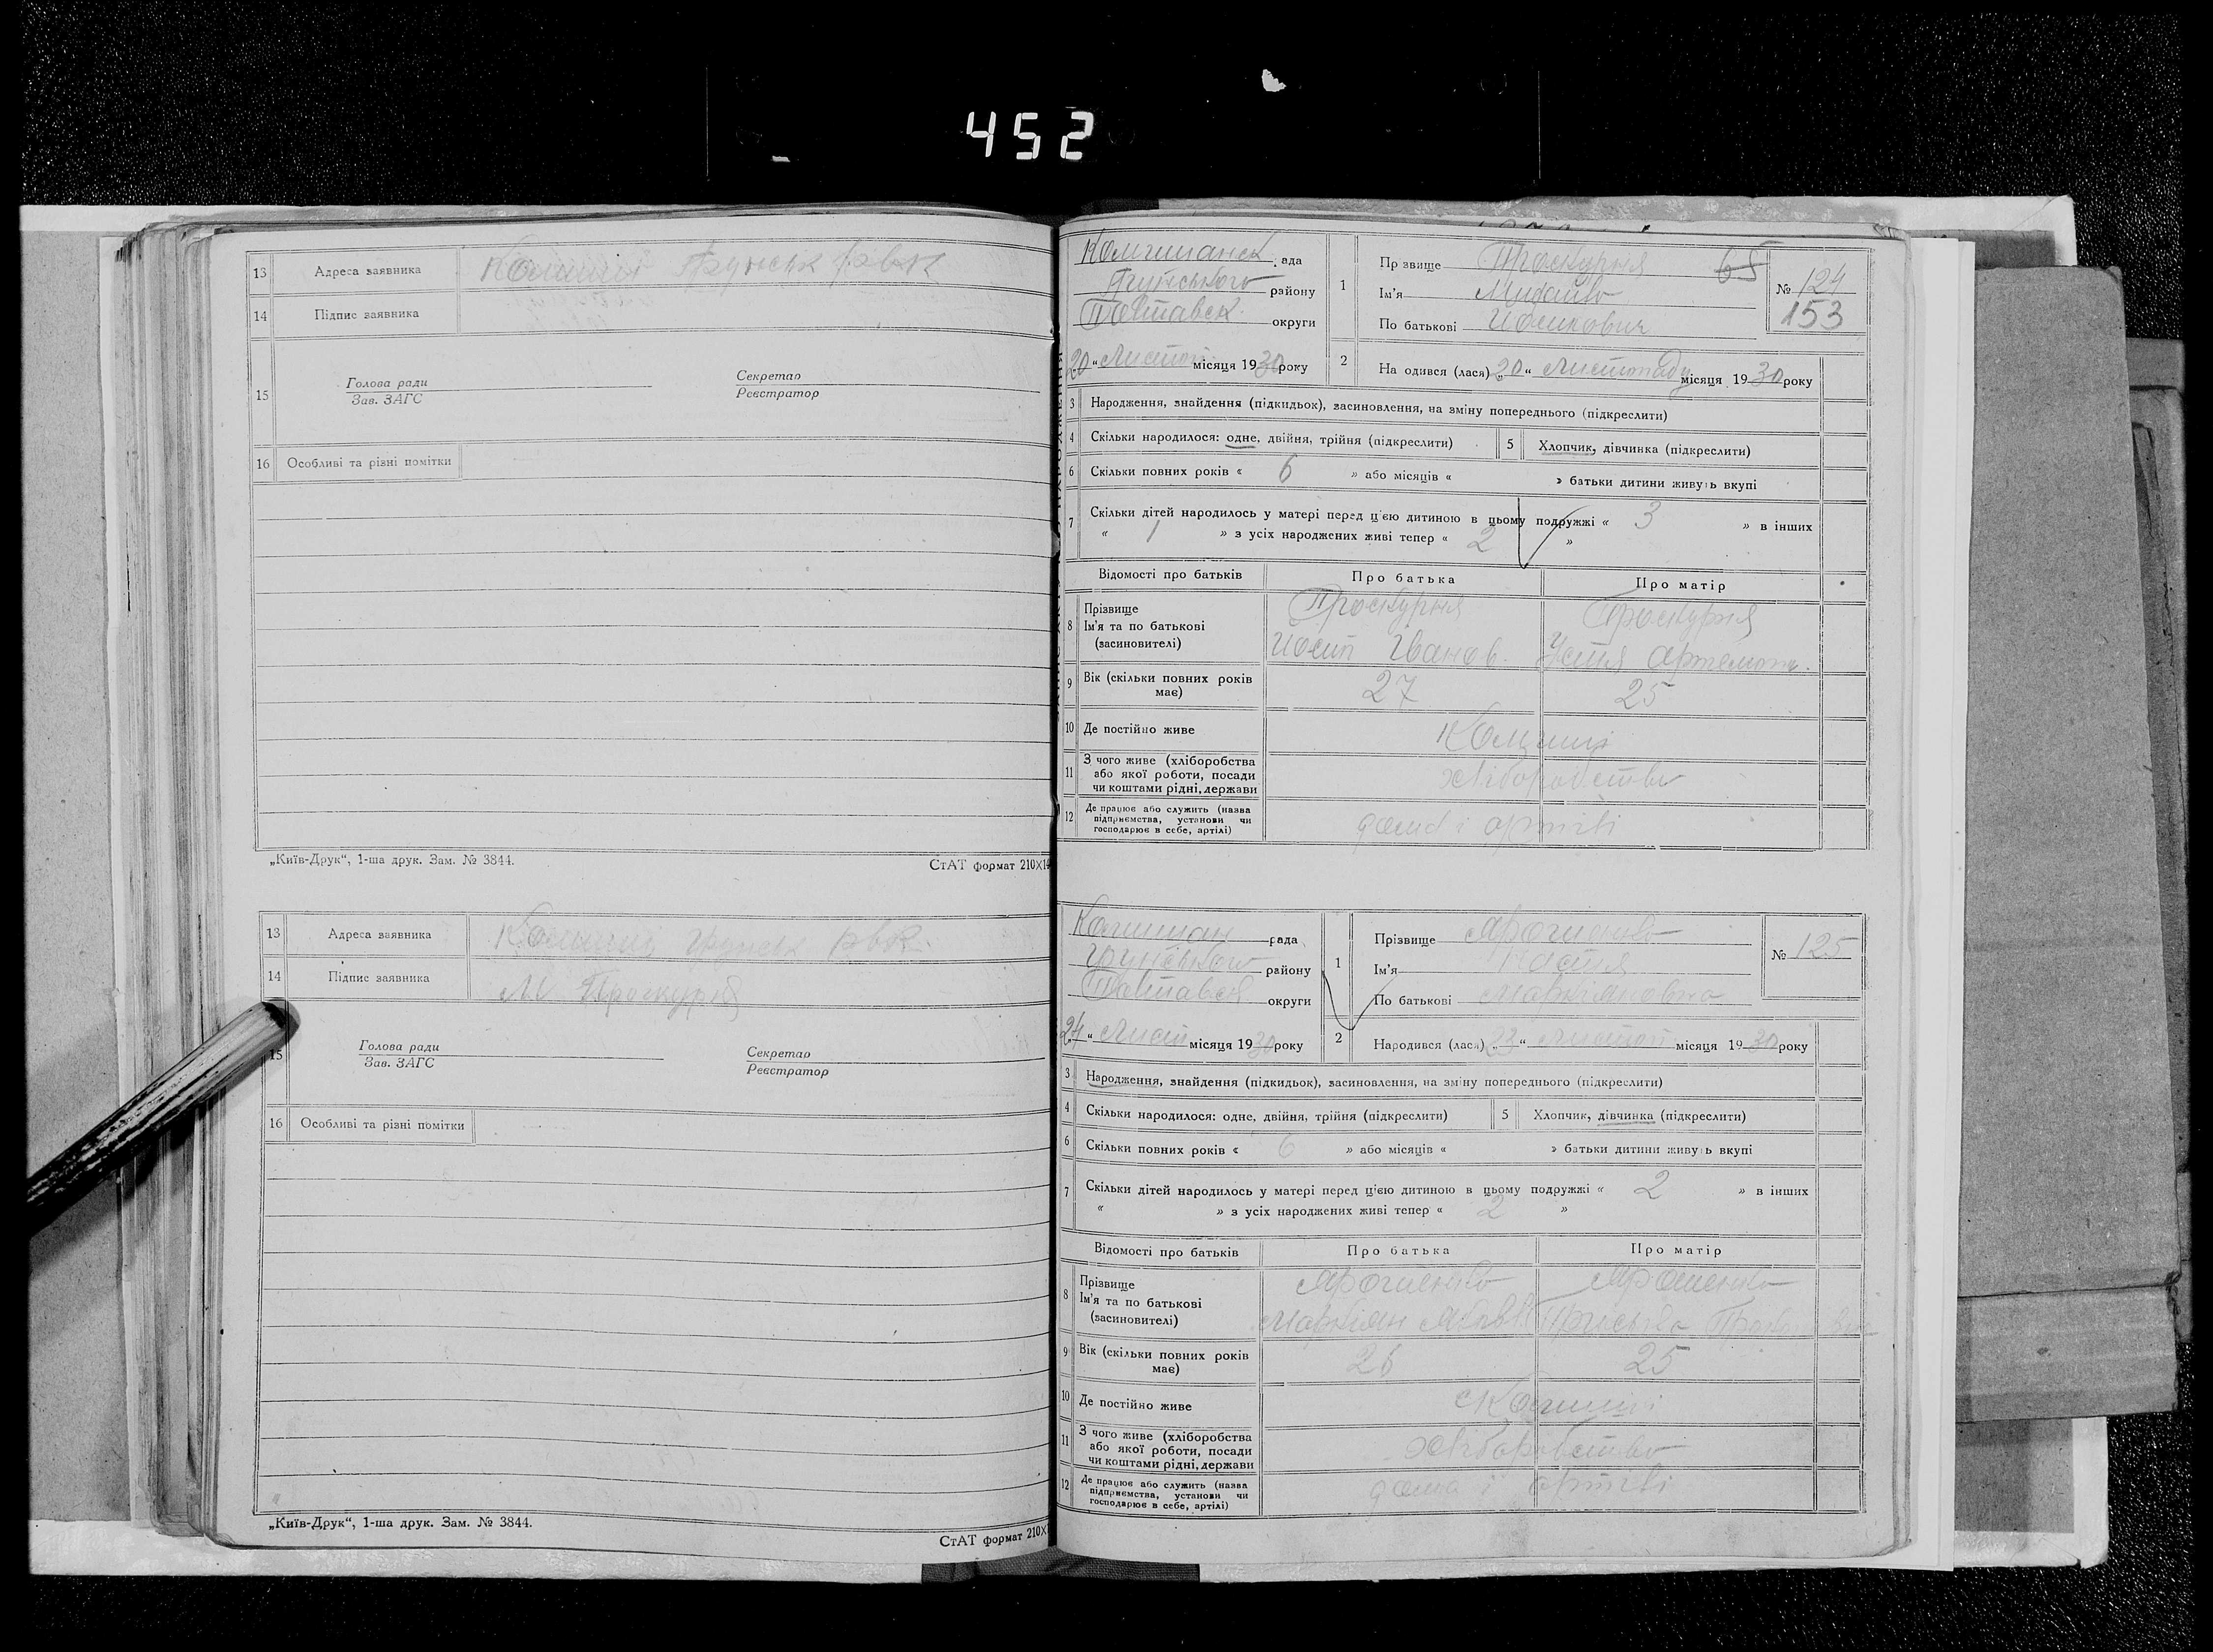 452
13 Адреса заявника
14 Підпис заявника
15 Голова ради
Зав. ЗАГС
Секретар
Реєстратор
16 Особливі та різні помітки
„Київ-Друк“, 1-ша друк. Зам. № 3844.
СтАТ формат 210Х14
13 Адреса заявника
14 Підпис заявника М Проскурня
15 Голова ради
Зав. ЗАГС
Секретар
Реєстратор
16 Особливі та різні помітки
„Київ-Друк“, 1-ша друк. Зам. № 3844.
СтАТ формат 210Х
рада
району
округи
20 " Листоп місяця 1930 року
1 Прізвище Проскурня 65
Ім'я Михайло
По батькові Йосипович
№ 124
153
2 Народився (лася) „20“ Листопаду місяця 1930 року
3 Народження, знайдення (підкидьок), засиновлення, на зміну попереднього (підкреслити)
4 Скільки народилося: одне, двійня, трійня (підкреслити) 5 Хлопчик, дівчинка (підкреслити)
6 Скільки повних років « 6 » або місяців « » батьки дитини живуть вкупі
7 Скільки дітей народилось у матері перед цією дитиною в цьому подружжі « 3 » в інших
« 1 » з усіх народжених живі тепер « 2 »
Відомості про батьків Про батька Про матір
8 Прізвище Проскурня Проскурня
Ім'я та по батькові
(засиновителі) Йосип Іванов. Устя
9 Вік (скільки повних років має) 27 25
10 Де постійно живе
11 З чого живе (хліборобства
або якої роботи, посади
чи коштами рідні, держави хліборобство
12 Де працює або служить (назва
підприємства, установи чи
господарює в себе, артілі) дома і артілі
рада
району
округи
24 " Лист місяця 1930 року
1 Прізвище
Ім'я Настя
По батькові Маркіяновна
№ 125
2 Народився (лася) „ “ Листоп місяця 1930 року
3 Народження, знайдення (підкидьок), засиновлення, на зміну попереднього (підкреслити)
4 Скільки народилося: одне, двійня, трійня (підкреслити) 5 Хлопчик, дівчинка (підкреслити)
6 Скільки повних років « 6 » або місяців « » батьки дитини живуть вкупі
7 Скільки дітей народилось у матері перед цією дитиною в цьому подружжі « 2 » в інших
« » з усіх народжених живі тепер « 2 »
Відомості про батьків Про батька Про матір
8 Прізвище
Ім'я та по батькові
(засиновителі) Маркіян
9 Вік (скільки повних років має) 26 25
10 Де постійно живе
11 З чого живе (хліборобства
або якої роботи, посади
чи коштами рідні, держави хліборобство
12 Де працює або служить (назва
підприємства, установи чи
господарює в себе, артілі) дома і артілі